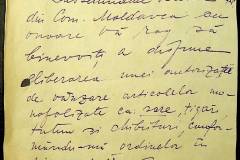 din Com. Moldovea cu
onoare vă rog să
binevoiți a dispune
eliberarea unei autorizații
de vânzare articolelor mo-
nopolizate ca: sare, țigări
tutun și chibrituri, confor-
mându-mă ordinelor în